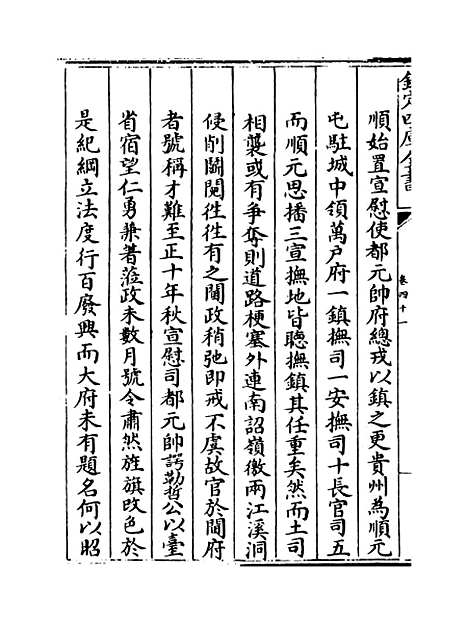 欽定四庫全書
卷四十一
順始置宣慰使都元帥府總戎以鎮之更貴州為順元
屯駐城中領萬户府一鎮撫司一安撫司十長官司五
而順元思播三宣撫地皆聽撫鎮其任重矣然而土司
相襲或有爭奪則道路梗塞外連南詔嶺徼兩江溪洞
侵削鬭䦧徃徃有之閫政稍弛即戒不虞故官於閫府
者號稱才難至正十年秋宣慰司都元帥諤勒哲公以臺
省宿望仁勇兼著蒞政未數月號令肅然旌旗改色於
是紀綱立法度行百廢興而大府未有題名何以昭